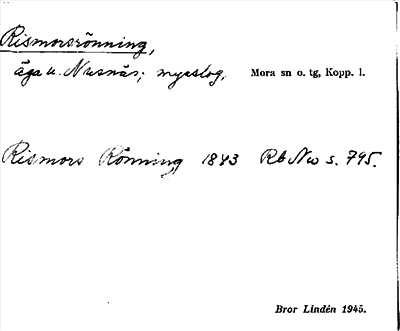 Rismorsrönning,
äga u. Nusnäs; myrslog, Mora sn o. tg, Kopp. l.
Rismors Rönning 1843 Rb Nus s. 795.
Bror Lindén 1945.